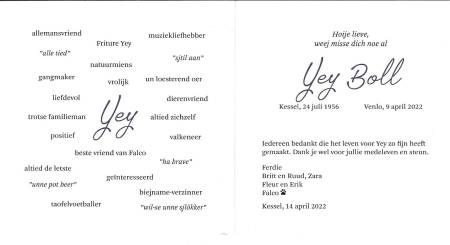 allemansvriend
muziekliefhebber
Friture Yey
"alle tied"
"sjtil aan"
natuurmiens
gangmaker
vrolijk
un loesterend oer
liefdevol
dierenvriend
Yey
trotse familieman
altied zichzelf
positief
valkeneer
beste vriend van Falco
"ha brave"
altied de letste
geïnteresseerd
"unne pot beer"
biejname-verzinner
taofelvoetballer
"wil-se unne sjlókker"
Hoije lieve,
weej misse dich noe al
Yey Boll
Kessel, 24 juli 1956
Venlo, 9 april 2022
Iedereen bedankt die het leven voor Yey zo fijn heeft
gemaakt. Dank je wel voor jullie medeleven en steun.
Ferdie
Britt en Ruud, Zara
Fleur en Erik
Falco
Kessel, 14 april 2022